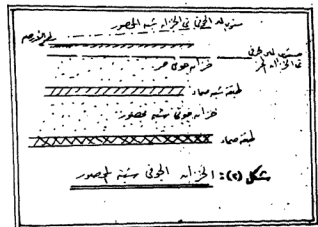 منسوب الماء الجوفي في الخزان شبه المحصور
سطح الأرض
منسوب الماء الجوفي
في الخزان الحر
خزان جوفي حر
طبقة شبه صماء
خزان جوفي شبه محصور
طبقة صماء
شكل (٢): الخزان الجوفي شبه المحصور